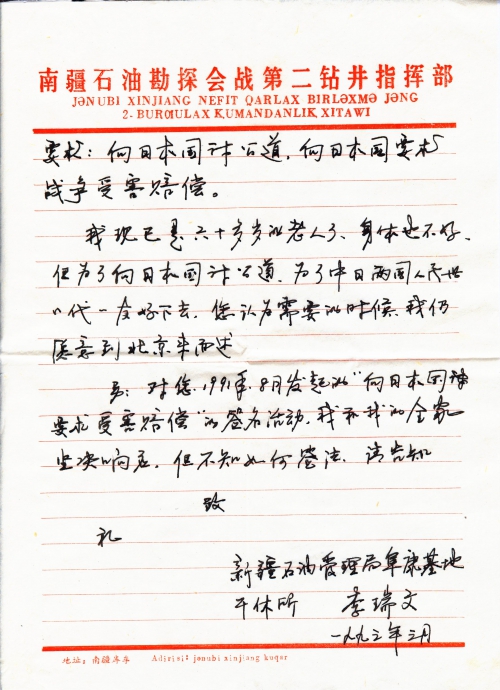 南疆石油勘探会战第二钻井指挥部
JƏNUBI XINJIANG NEFIT QARLAX BIRLƏXMƏ JƏNG
2-BURƢULAX KUMANDANLIK XITAWI
要求：向日本国讨公道，向日本国要求
战争受害赔偿。
我现已是六十多岁的老人了、身体也不好、
但为了向日本国讨公道、为了中日两国人民世
世代代友好下去、您认为需要的时候、我仍
愿意到北京来面述
另：对您1991年8月发起的"向日本国
要求受害赔偿"的签名活动，我和我的全家
坚决响应，但不知如何签法、请告知
致
礼
新疆石油管理局阜康基地
干休所 李瑞文
一九九二年三月
地址：南疆库车 Adirisi: jənubi xinjiang kuqar